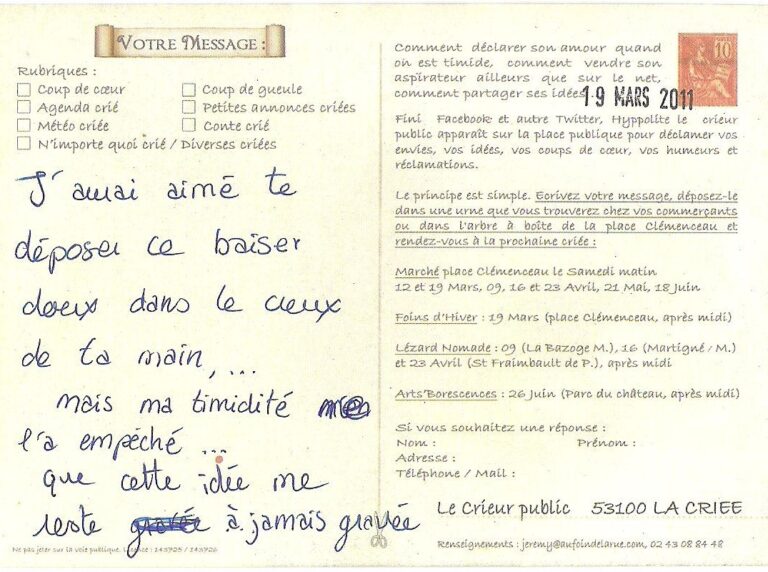 VOTRE MESSAGE :
Rubriques :
Coup de cœur
Coup de gueule
Agenda crié
Petites annonces criées
Météo criée
Conte crié
N'importe quoi crié / Diverses criées
J'aurai aimé te
déposer ce baiser
doux dans le creux
de ta main, ...
mais ma timidité
l'a empêché ...
que cette idée me
reste gravée à jamais gravée
Ne pas jeter sur la voie publique. Licence : 143725 / 143726
Comment déclarer son amour quand
on est timide, comment vendre son
aspirateur ailleurs que sur le net,
comment partager ses idées
10
19 MARS 2011
Fini Facebook et autre Twitter, Hyppolite le crieur
public apparaît sur la place publique pour déclamer vos
envies, vos idées, vos coups de cœur, vos humeurs et
réclamations.
Le principe est simple. Ecrivez votre message, déposez-le
dans une urne que vous trouverez chez vos commerçants
ou dans l'arbre à boîte de la place Clémenceau et
rendez-vous à la prochaine criée :
Marché place Clémenceau le Samedi matin
12 et 19 Mars, 09, 16 et 23 Avril, 21 Mai, 18 Juin
Foins d'Hiver : 19 Mars (place Clémenceau, après midi)
Lézard Nomade : 09 (La Bazoge M.), 16 (Martigné / M.)
et 23 Avril (St Fraimbault de P.), après midi
Arts'Borescences : 26 Juin (Parc du château, après midi)
Si vous souhaitez une réponse :
Nom : Prénom :
Adresse :
Téléphone / Mail :
Le Crieur public 53100 LA CRIEE
Renseignements : jeremy@aufoindelarue.com, 02 43 08 84 48